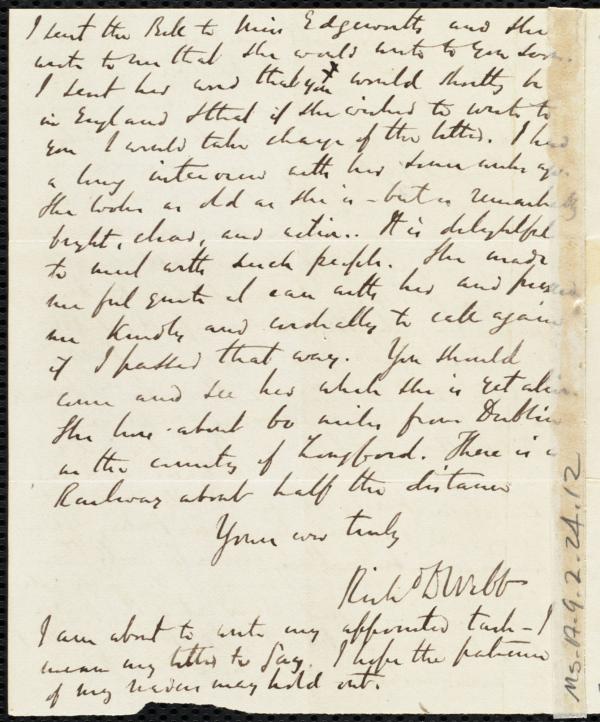 I sent the Bell to Miss Edgeworth and she
wrote to me that she would write to you soon.
I sent her word that you would shortly be
in England & that if she wished to write to
you I would take charge of the letter. I had
a long interview with her some weeks ago.
She looks as old as she is – but is remarkably
bright, clear, and active. It is delightful
to meet with such people. She made
me feel quite at ease with her and pressed
me kindly and cordially to call again
if I passed that way. You should
come and see her while she is yet alive.
She lives about 60 miles from Dublin
in the county of Longford. There is a
Railway about half the distance
Yours ever truly
Rich<sup>d</sup> D Webb
I am about to write my appointed task – I
mean my letter to Gay. I hope the patience
of my readers may hold out.
Ms. A.9.2.24.12